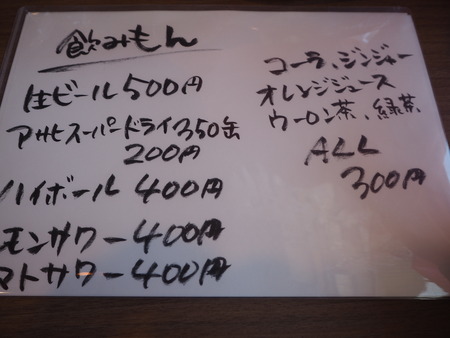 飲みもん
生ビール 500円
アサヒスーパードライ350缶
200円
ハイボール 400円
モンサワー 400円
マトサワー 400円
コーラ、ジンジャー
オレンジジュース
ウーロン茶、緑茶
ALL
300円